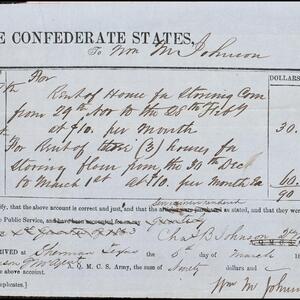 E CONFEDERATE STATES,
To Wm M Johnson
DOLLARS
For
Rent of House for Storing Corn
from 29th Nov to the 28th Feby
at $10. per Month 30.
For Rent of three (3) houses for
storing flour from the 30th Dec
to March 1st at $10. per month Ea 60.
90
tify, that the above account is correct and just; and that the
Public Service, and
Chas B Johnson
IVED AT Sherman Texas the 5th day of March 18
Q. M. C. S. Army, the sum of Ninety dollars and
e above account.
Wm M Johnson